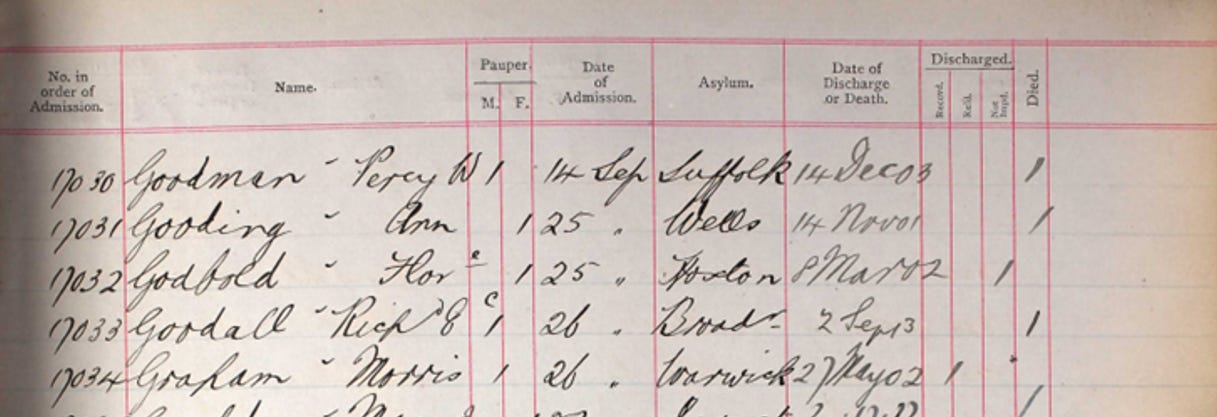 No. in order of Admission. Name. Pauper. M. F. Date of Admission. Asylum. Date of Discharge or Death. Discharged. Recovd. Reld. Not Impd. Died.
17030 Goodman " Percy W 1 14 Sep Suffolk 14 Dec 03 1
17031 Gooding " Ann 1 25 " Wells 14 Nov 01 1
17032 Godbold " Flor e 1 25 " Hoxton 8 Mar 02 1
17033 Goodall " Richd E C 1 26 " Broadr 2 Sep 13 1
17034 Graham " Morris 1 26 " Warwick 27 May 02 1